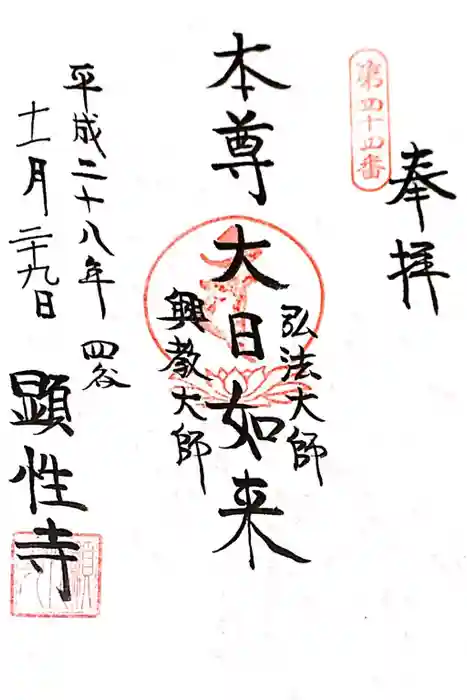 第四十四番
奉拝
弘法大師
本尊大日如来
興教大師
平成二十八年
十一月二十九日
四谷
顯性寺